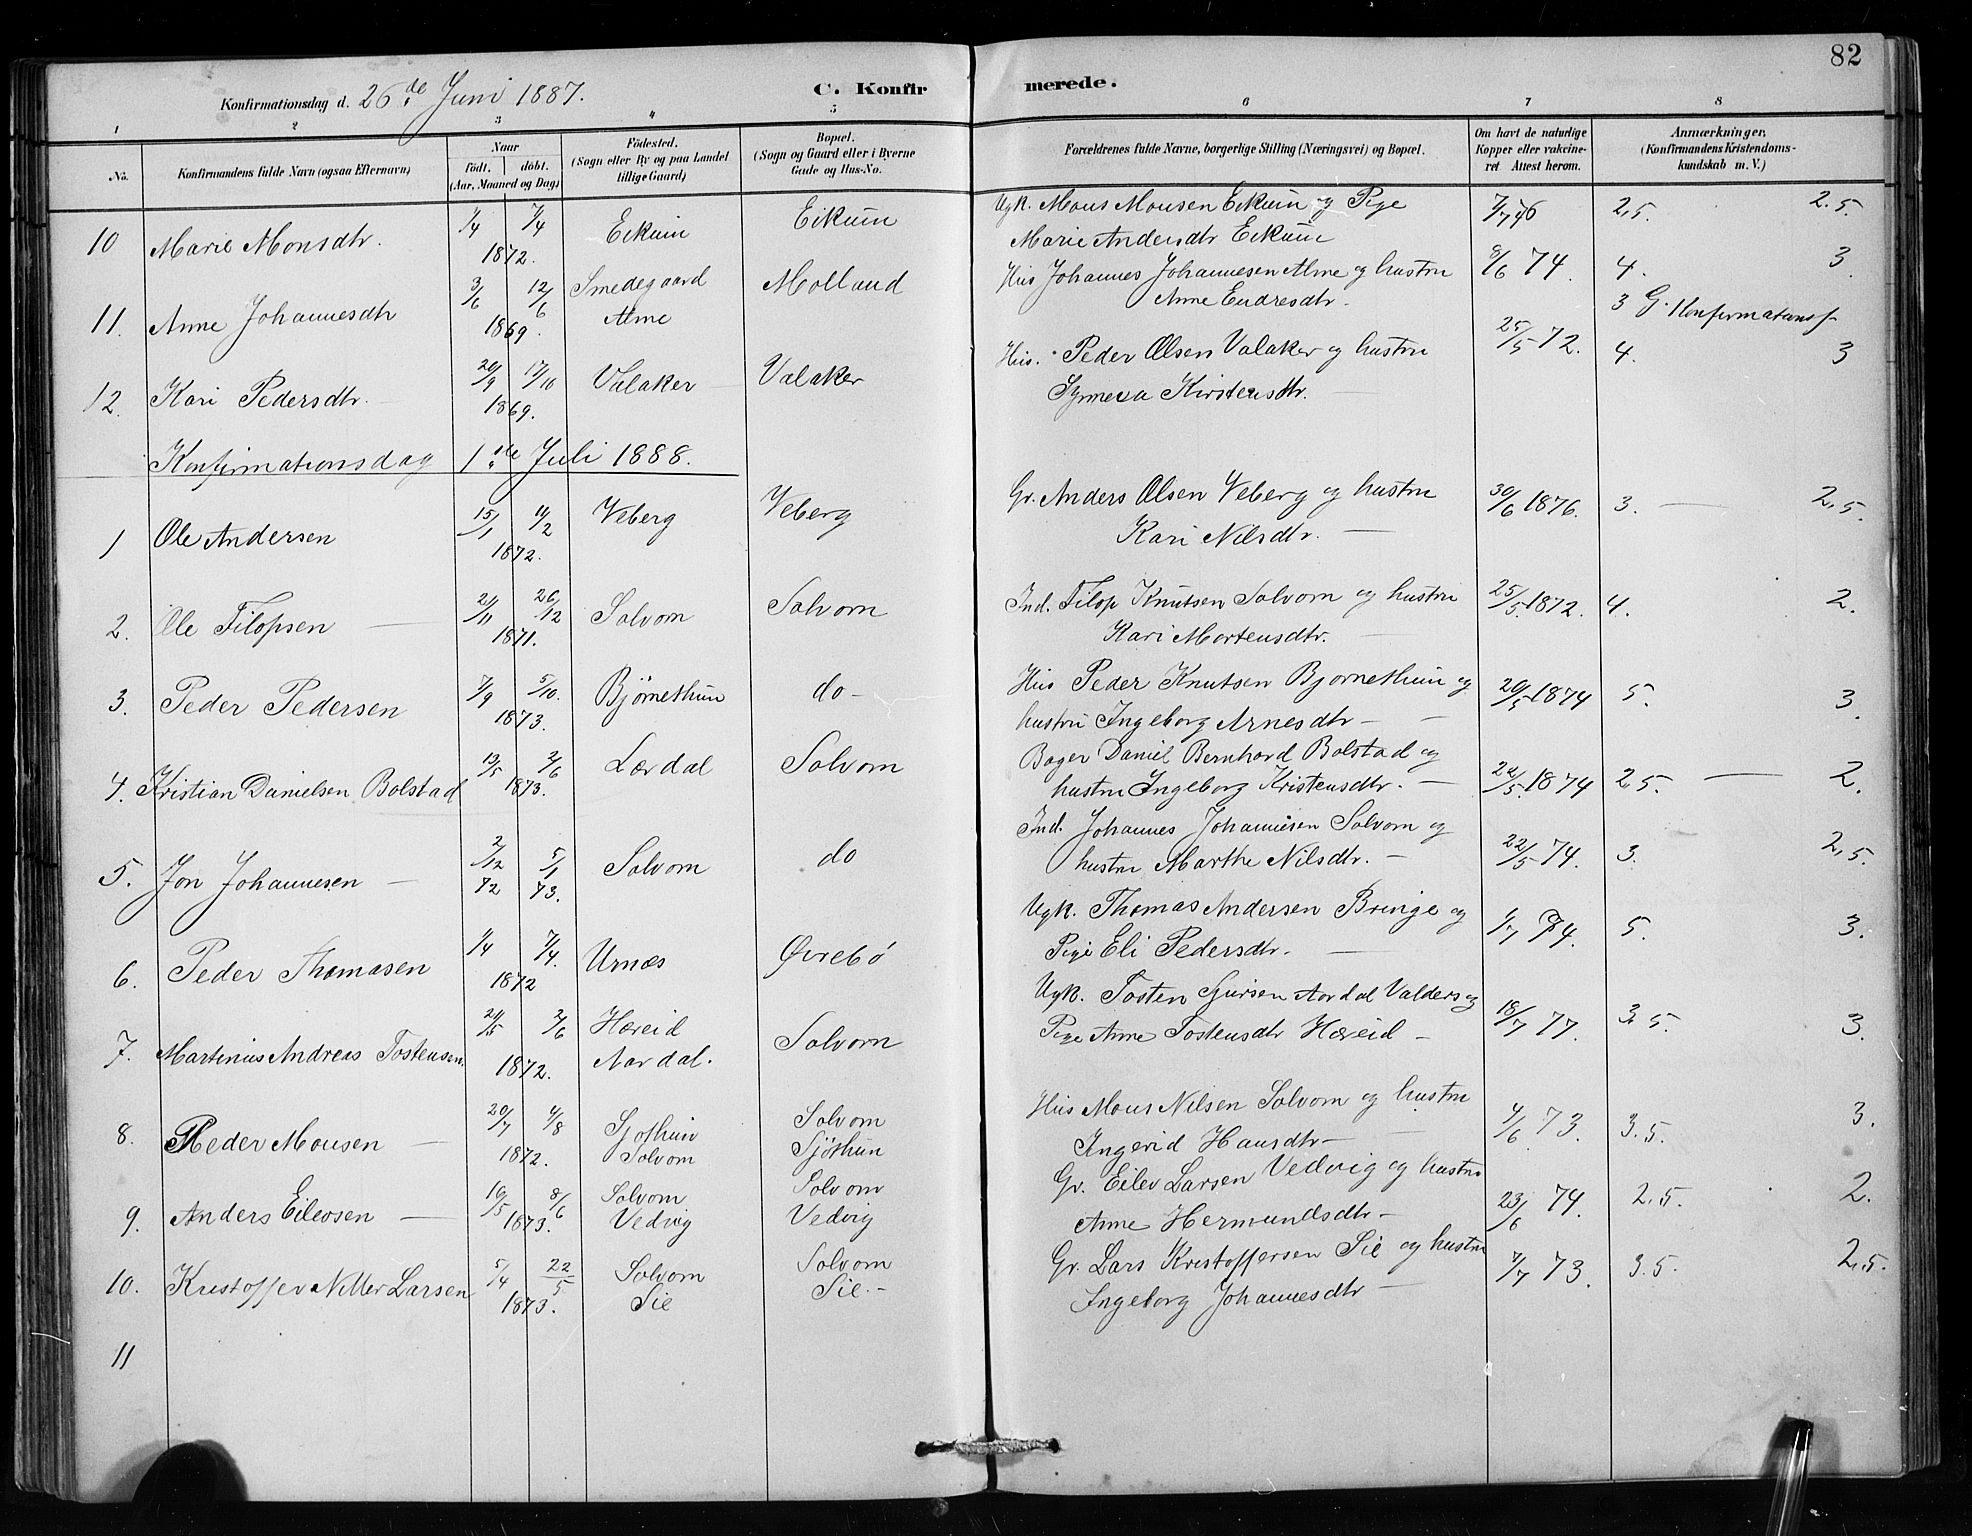 82
Konfirmationsdag d. 26de Juni 1887. C. Konfirmerede.
1 2 3 4 5 6 7 8
No. Konfirmandens fulde Navn (ogsaa Efternavn) Naar født. døbt. (Aar, Maaned og Dag) Fødested. (Sogn eller By og paa Landet tillige Gaard) Bopæl. (Sogn og Gaard eller i Byerne Gade og Hus-No. Forældrenes fulde Navne, borgerlige Stilling (Næringsvei) og Bopæl. Om havt de naturlige Kopper eller vakcineret Attest herom. Anmærkninger, (Konfirmandens Kristendomskundskab m. V.)
10 Marie Monsdtr. 1/4 7/4 1872. Eikum Eikum Ugk. Mons Monsen Eikum og Pige 2,5. 2.5.
Marie Andersdtr Eikum
11. Anne Johannesdtr 3/6 12/6 1869. Smedegaard Alme Molland Hus Johannes Johannesen Alme og hustru 8/6 74. 4. 3.
Anne Endresdtr. 3 G. Konfirmationsf
12. Kari Pedersdtr. 20/9 17/10 1869. Valaker Valaker Hus. Peder Olsen Valaker og hustru 25/5 72. 4. 3
Synneva Kirstensdtr.
Konfirmationsdag 1ste Juli 1888.
1 Ole Andersen 15/1 11/2 1872. Veberg Veberg Gr. Anders Olsen Veberg og hustru 30/6 1876. 3. 2,5.
Kari Nilsdtr.
2. Ole Filopsen 21/11 26/12 1871. Solvorn Solvorn Ind. Filop Knutsen Solvorn og hustru 25/5 1872. 4. 2.
Kari Mortensdtr.
3. Peder Pedersen 7/9 5/10. 1873. Bjørnethun do Hus Peder Knutsen Bjørnethun og 20/5 1874 5. 3.
hustru Ingeborg Arnesdtr
4. Kristian Danielsen Bolstad 13/5 2/6 1873. Lærdal Solvorn Bager Daniel Bernhard Bolstad og
hustru Ingeborg Kristensdtr. 22/5. 1874 2,5. 2.
5. Jon Johannesen 2/12 72 5/1 73. Solvorn do Ind. Johannes Johannesen Solvorn og
hustru Marthe Nilsdtr. 22/5 74. 3. 2,5.
6. Peder Thomasen 1/4 7/4. 1872 Urnæs Øvrebø Ugk. Thomas Andersen Bringe og
Pige Eli Pedersdtr. 1/7 74. 5. 3.
7. Martinus Andreas Tostensen. 24/5 2/6 1872. Hæreid Aardal. Solvorn Ugk. Tosten Gursen Aardal Valders og
Pige Anne Tostensdtr Hæreid 18/7 77. 3,5. 3.
8. Peder Monsen 20/7 4/8 1872. Sjøthun Solvorn Solvorn Sjøthun Hus Mons Nilsen Solvorn og hustru
Ingerid Hansdtr 4/6 73. 3.5. 3.
9. Anders Eilevsen 10/5 8/6 1873. Solvorn Vedvig Solvorn Vedvig Gr. Eilev Larsen Vedvig og hustru
Anne Hermundsdtr 23/6 74. 2.5. 2.
10. Kristoffer Nitter Larsen 5/4 22/5 1873. Solvorn Sie Solvorn Sie. Gr. Lars Kristoffersen Sie og hustru
Ingeborg Johannesdtr 7/7 73. 3.5. 2,5.
11